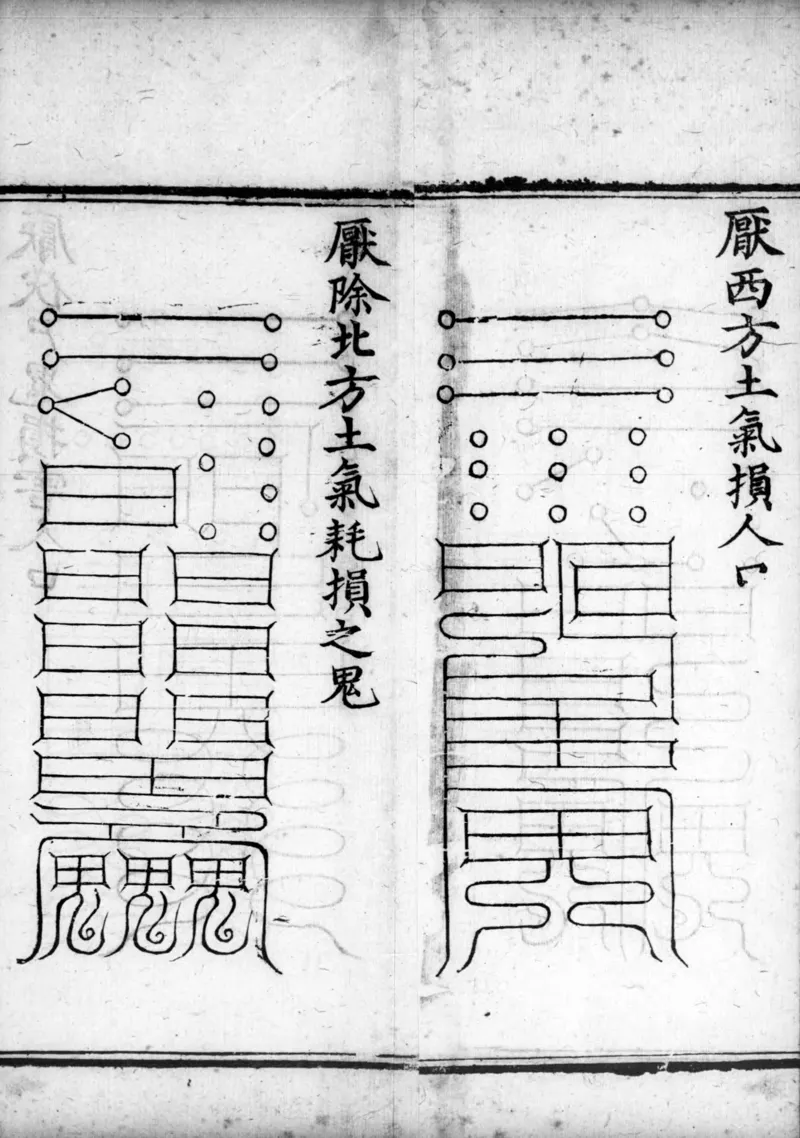 厭西方土氣損人口
厭除北方土氣耗損之鬼